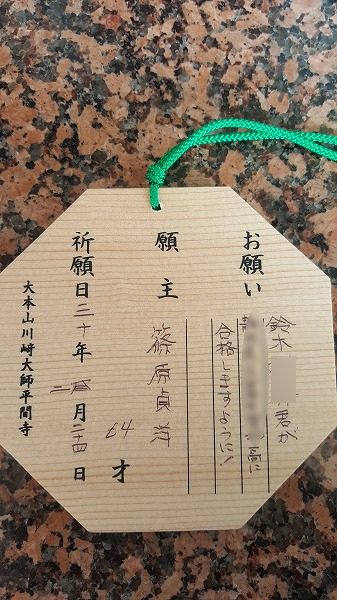 お願い
鈴木 君が
高に
合格しますように!
願主 篠原貞洋 64才
祈願日三十年二月二十四日
大本山川崎大師平間寺